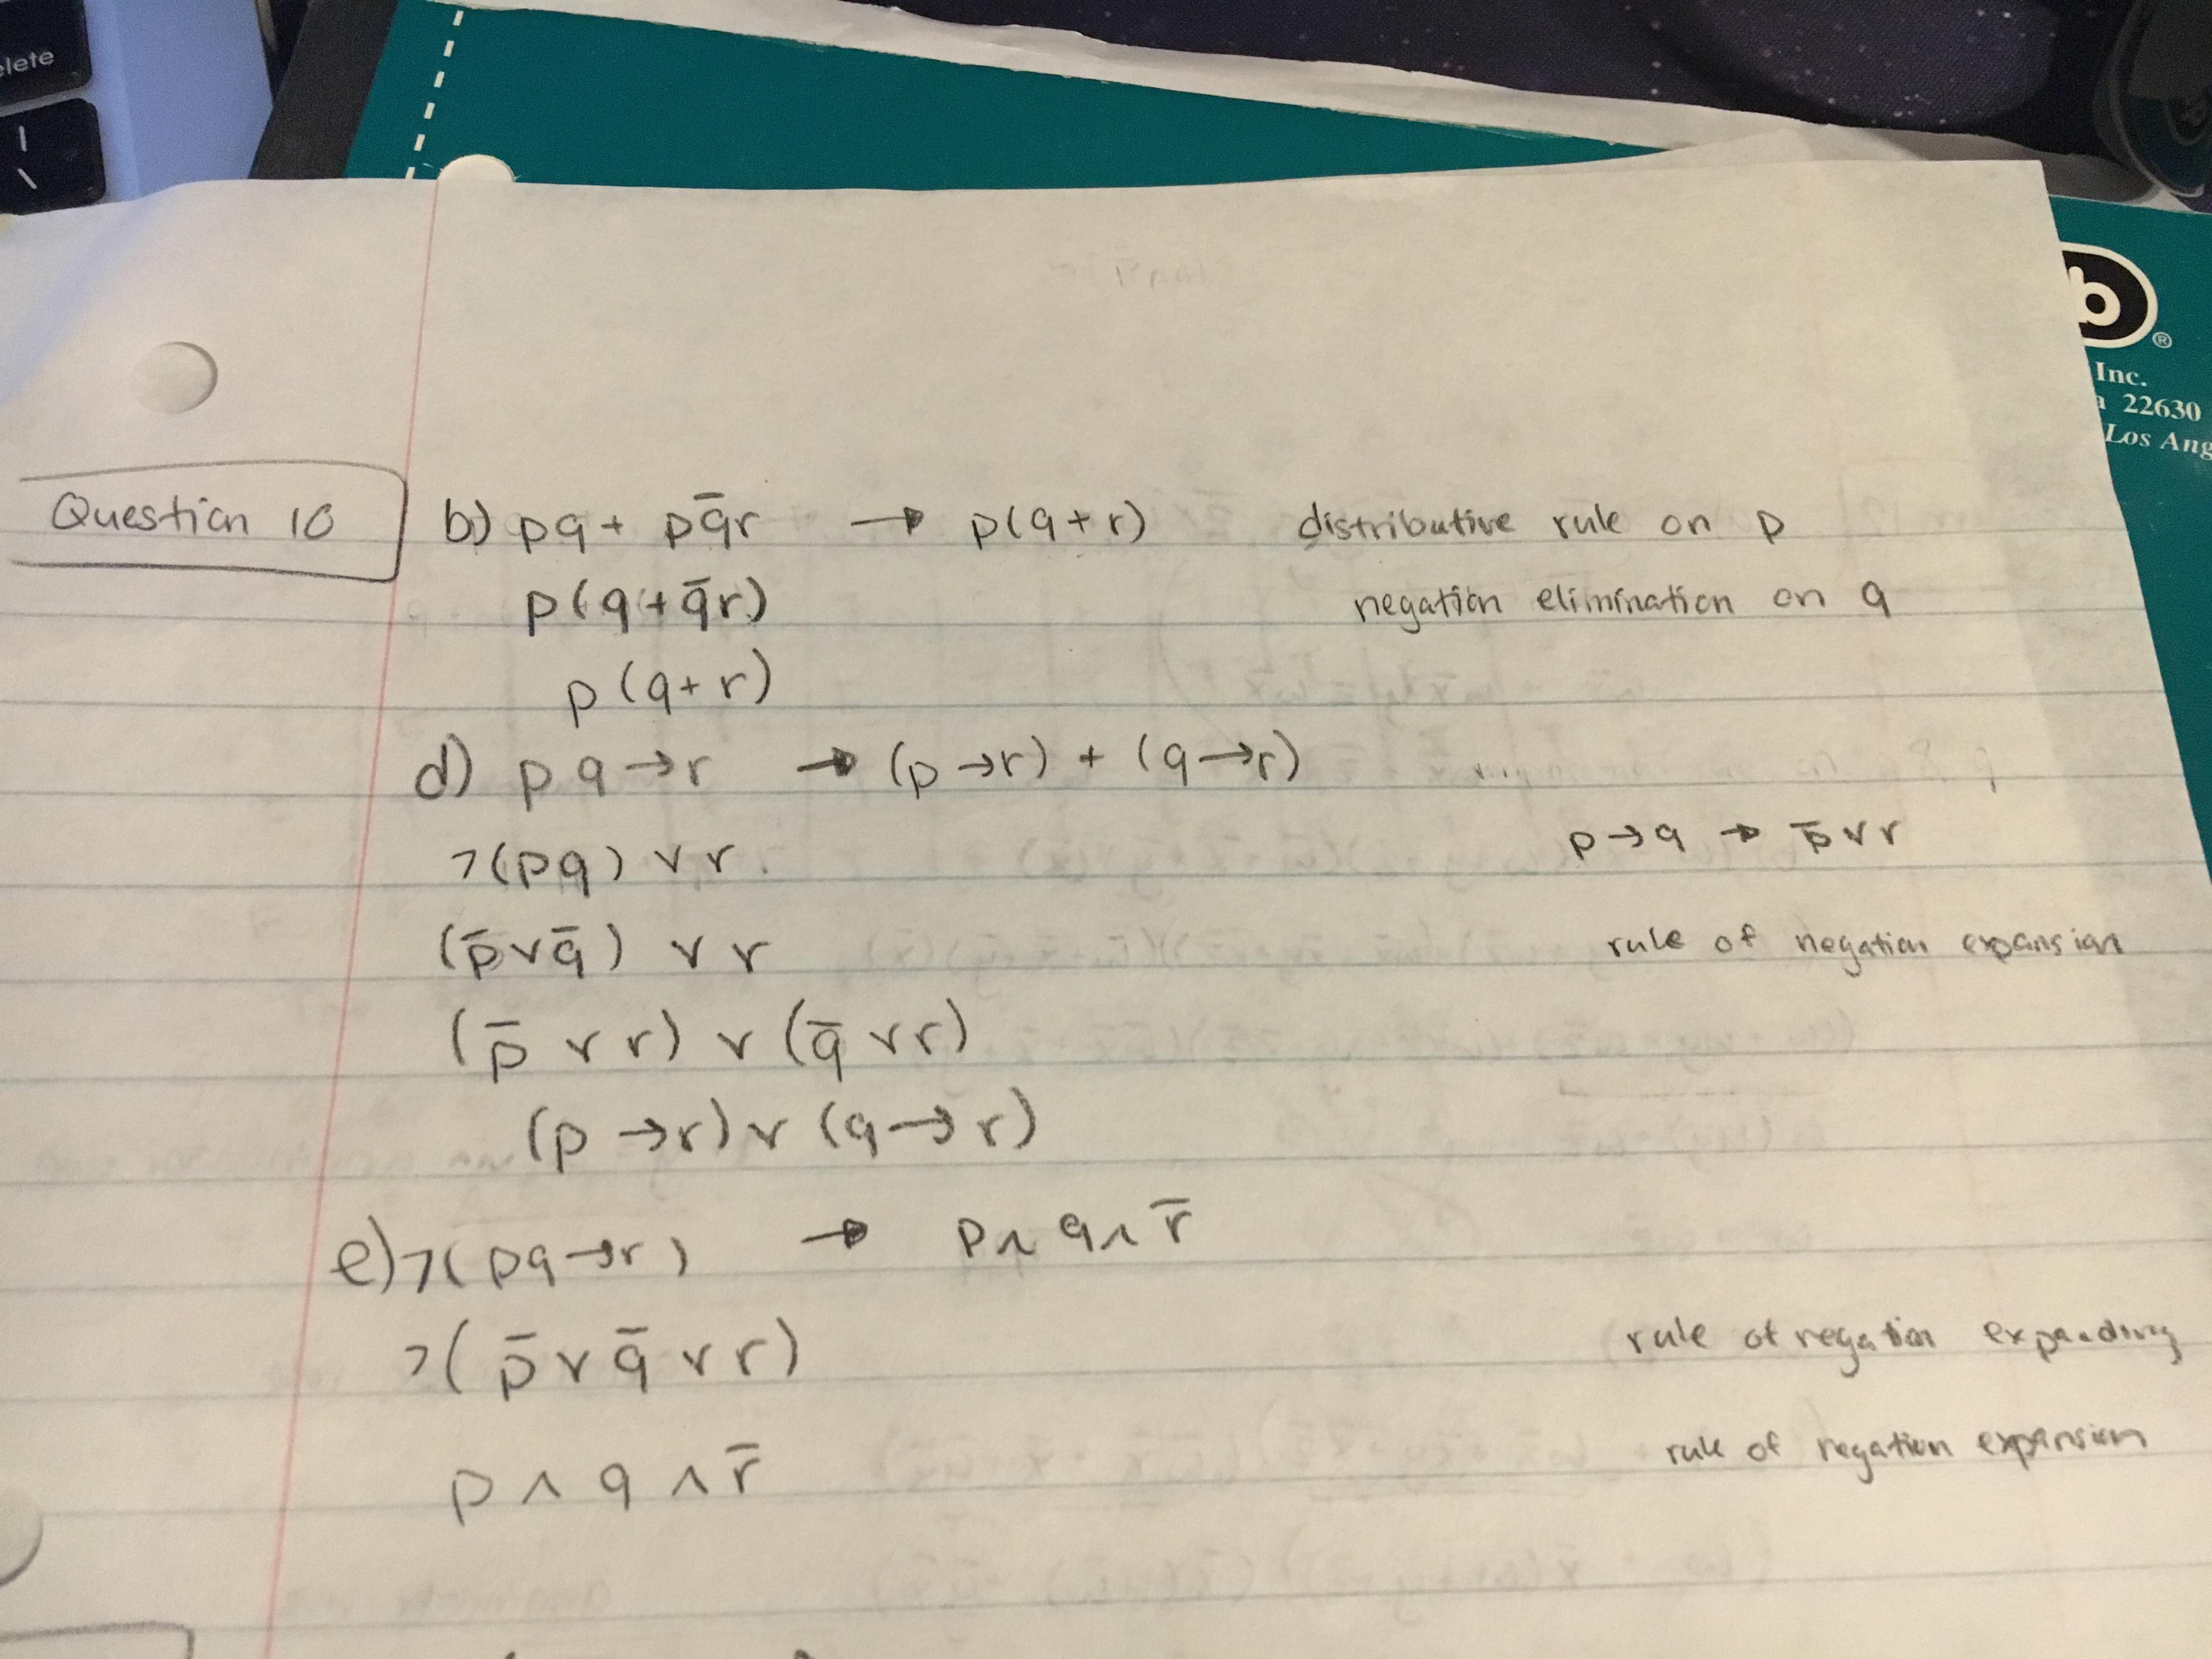 elete
b®
Inc.
22630
Los Ang
Question 10
b) pq + pq̅r → p(q+r) distributive rule on p
p(q+q̅r) negation elimination on q
p(q+r)
d) pq→r → (p→r) + (q→r)
¬(pq) ∨ r p→q → p̅∨r
(p̅∨q̅) ∨ r rule of negation expansion
(p̅ ∨ r) ∨ (q̅ ∨ r)
(p→r) ∨ (q→r)
e) ¬(pq→r) → p∧q∧r̅
¬(p̅∨q̅∨r) rule of negation expanding
p∧q∧r̅ rule of negation expansion